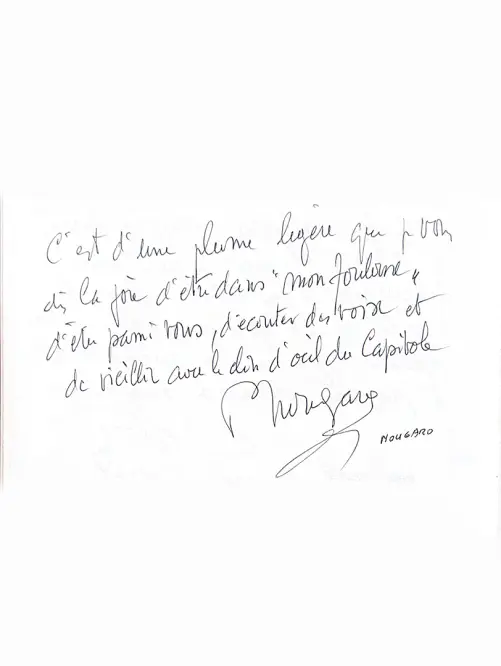 C'est d'une plume légère que je vous
dis la joie d'être dans "mon Toulouse"
d'être parmi vous, d'écouter des voix et
de vieillir avec le clin d'oeil du Capitole
Nougaro
NOUGARO